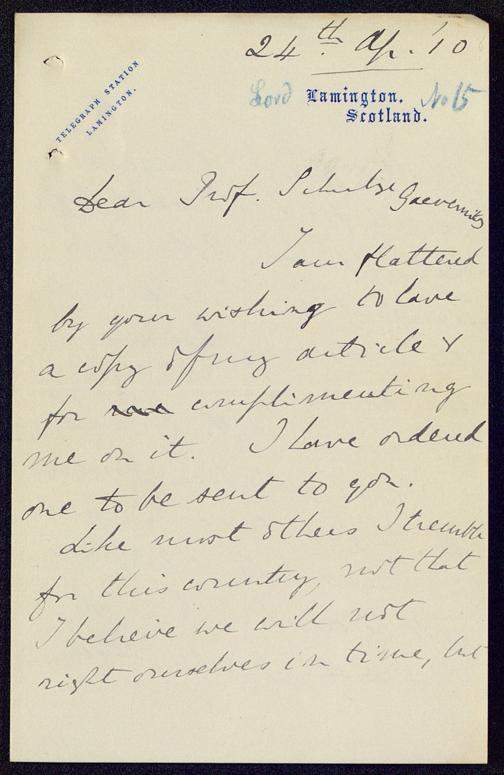 24th Ap. '10
TELEGRAPH STATION
LAMINGTON.
Lord Lamington. No 15
Scotland.
Dear Prof. Schulze Gaevernitz
I am flattered
by your wishing to have
a copy of my article &
for complimenting
me on it. I have ordered
one to be sent to you.
Like most others I tremble
for this country, not that
I believe we will not
right ourselves in time, but